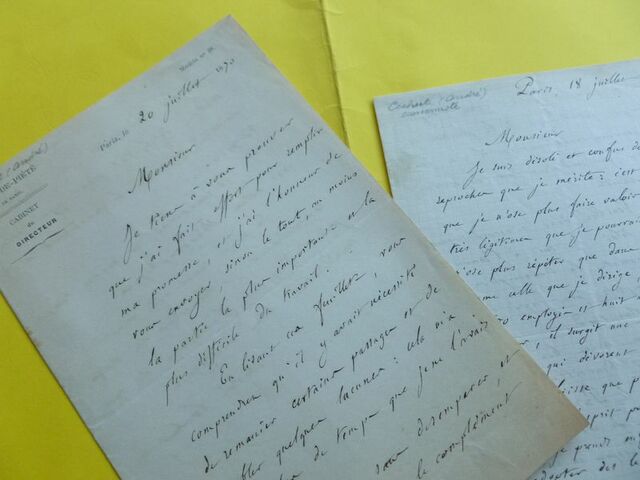 Modèle n° 
Paris, le 20 juillet 1890
-DE-PIÉTÉ
DE PARIS
CABINET
du
DIRECTEUR
Monsieur
Je tiens à vous prouver
que j'ai fait effort pour remplir
ma promesse, et j'ai l'honneur de
vous envoyer, sinon le tout, au moins
la partie la plus importante et la
plus difficile du travail.
En lisant ces feuillets, vous
comprendrez qu'il y avait nécessité
de remanier certains passages et de
combler quelques lacunes : cela m'a
de temps que je ne l'avais
sans désemparer et
le complément
(André)
Paris, 18 juillet
Monsieur
Je suis désolé et confus de
reproches que je mérite : c'est
que je n'ose plus faire valoir
très légitimes que je pourrais
n'ose plus répéter que dans
me celle que je dirige
employés et huit
il surgit une
qui dévorent
que p
je prends
des